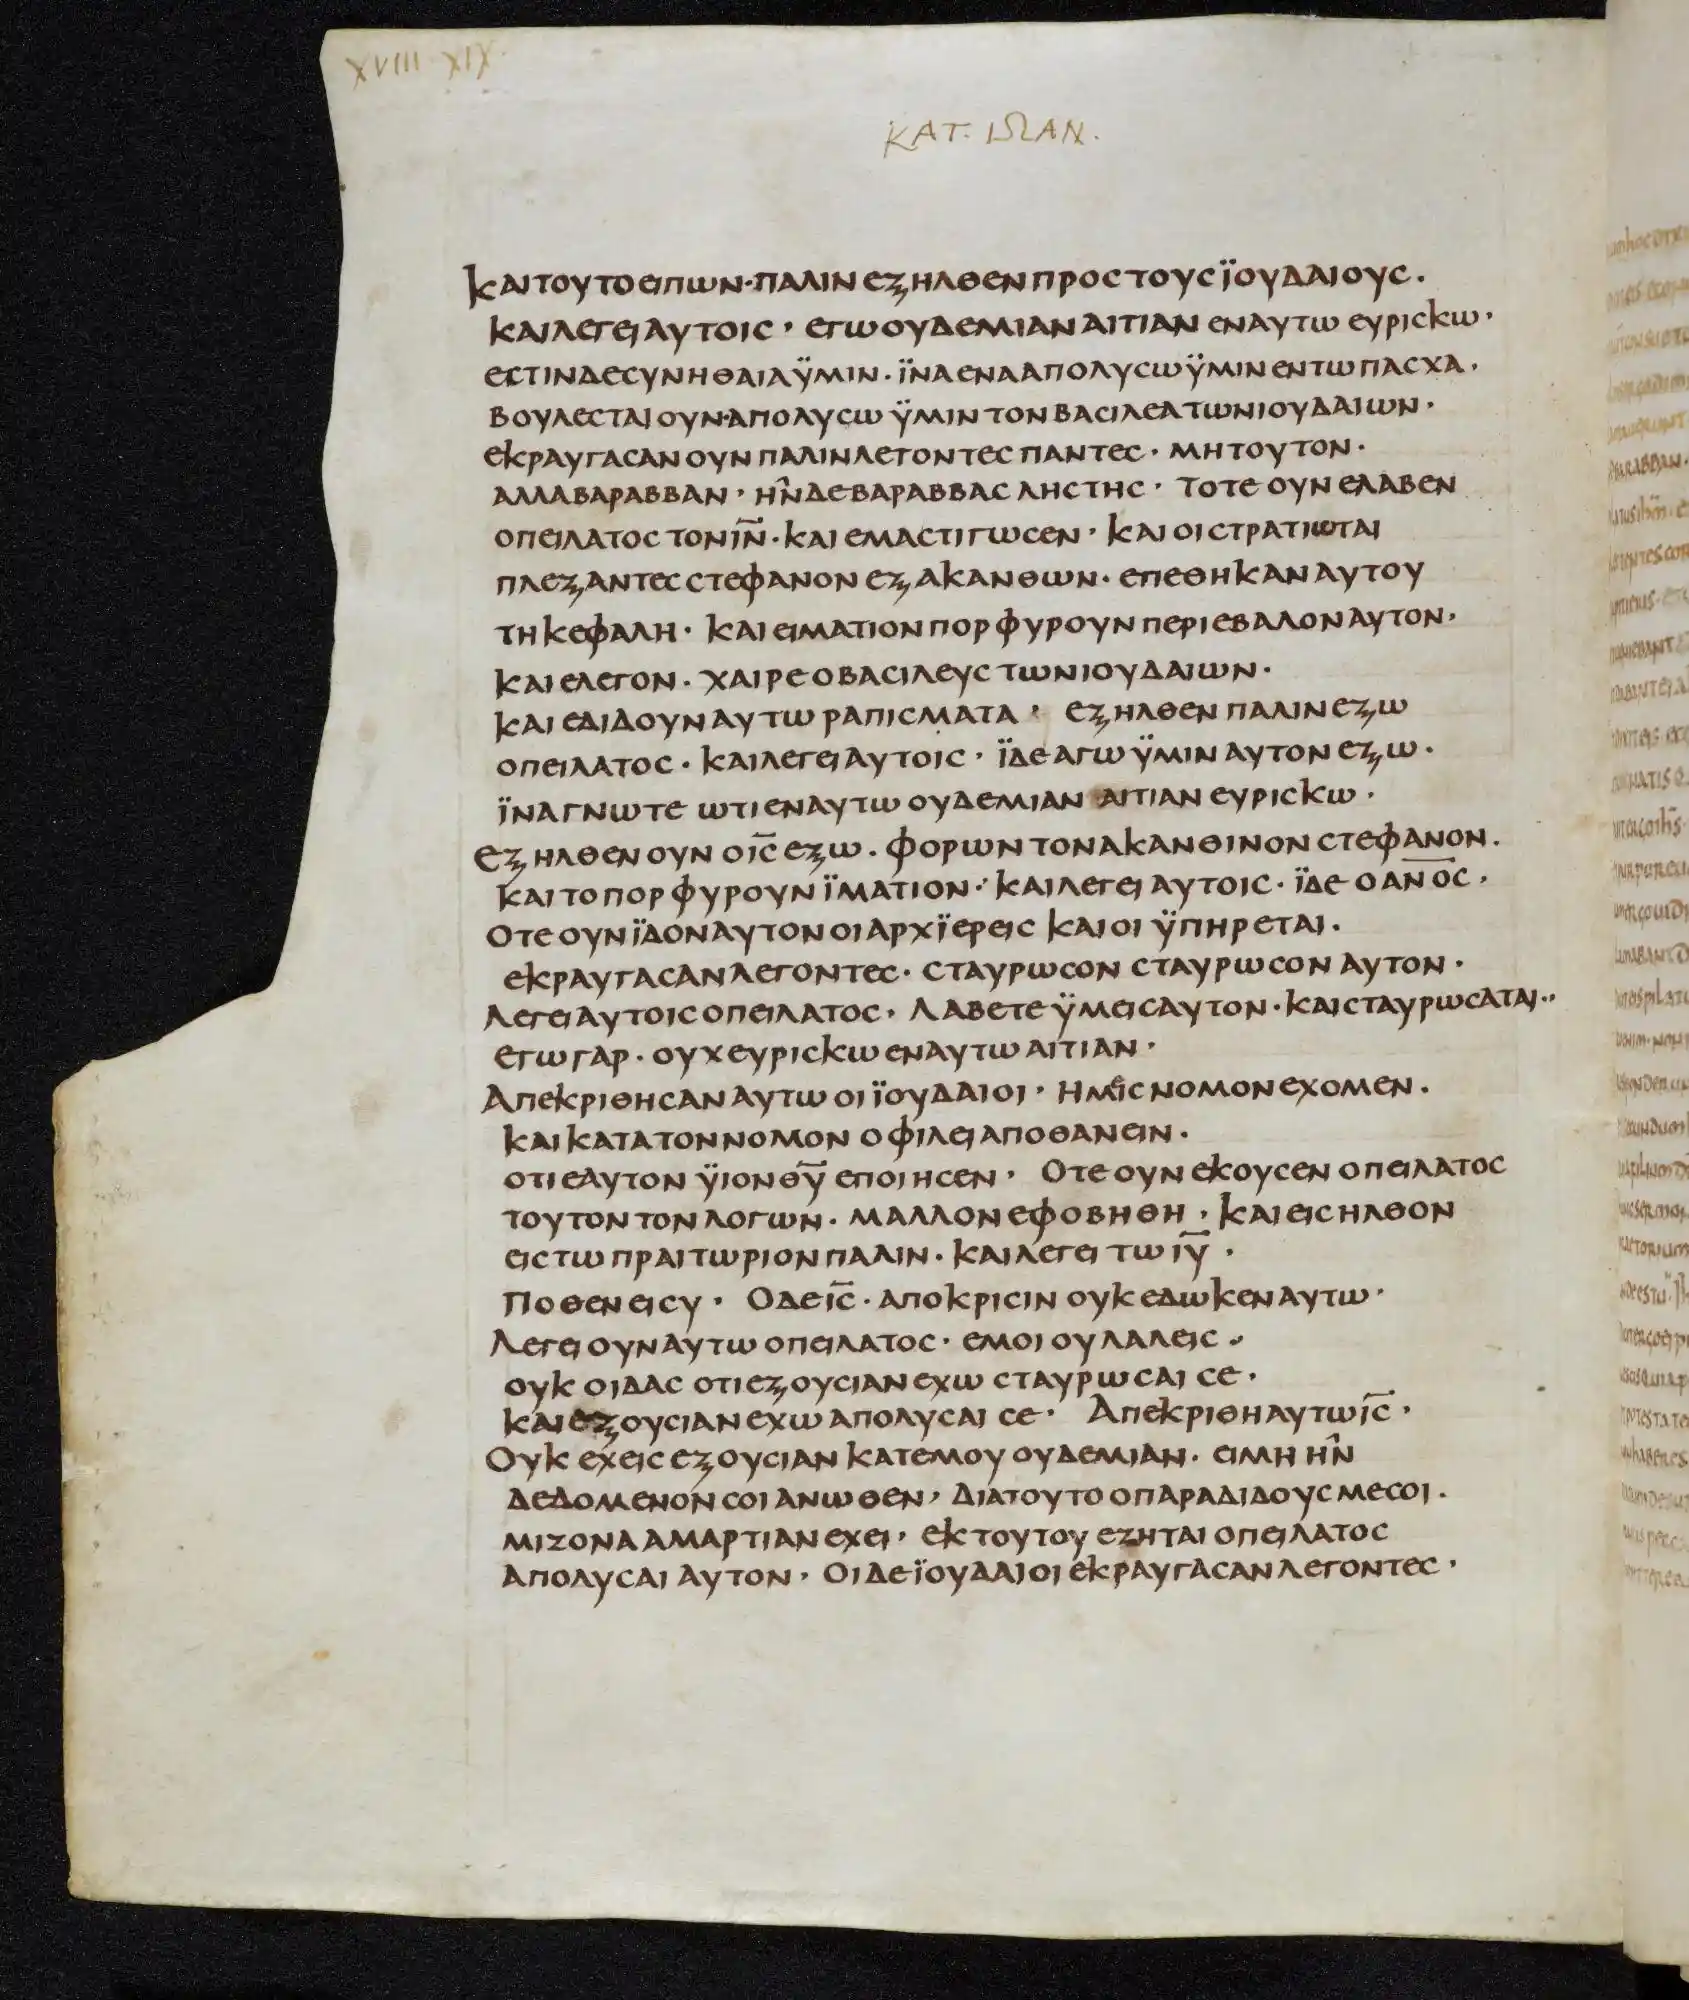 XVIII–XIX.
ΚΑΤ. ΙΩΑΝ.
ΚΑΙ ΤΟΥΤΟ ΕΙΠΩΝ · ΠΑΛΙΝ ΕΞΗΛΘΕΝ ΠΡΟΣ ΤΟΥΣ ΪΟΥΔΑΙΟΥΣ .
ΚΑΙ ΛΕΓΕΙ ΑΥΤΟΙΣ · ΕΓΩ ΟΥΔΕΜΙΑΝ ΑΙΤΙΑΝ ΕΝ ΑΥΤΩ ΕΥΡΙΣΚΩ ·
ΕΣΤΙΝ ΔΕ ΣΥΝΗΘΑΙΑ ΫΜΙΝ · ΪΝΑ ΕΝΑ ΑΠΟΛΥΣΩ ΫΜΙΝ ΕΝ ΤΩ ΠΑΣΧΑ ·
ΒΟΥΛΕΣΤΑΙ ΟΥΝ · ΑΠΟΛΥΣΩ ΫΜΙΝ ΤΟΝ ΒΑΣΙΛΕΑ ΤΩΝ ΙΟΥΔΑΙΩΝ ·
ΕΚΡΑΥΓΑΣΑΝ ΟΥΝ ΠΑΛΙΝ ΛΕΓΟΝΤΕΣ ΠΑΝΤΕΣ · ΜΗ ΤΟΥΤΟΝ ·
ΑΛΛΑ ΒΑΡΑΒΒΑΝ · ΗΝ ΔΕ ΒΑΡΑΒΒΑΣ ΛΗΣΤΗΣ · ΤΟΤΕ ΟΥΝ ΕΛΑΒΕΝ
Ο ΠΕΙΛΑΤΟΣ ΤΟΝ ΙΝ̅ · ΚΑΙ ΕΜΑΣΤΙΓΩΣΕΝ · ΚΑΙ ΟΙ ΣΤΡΑΤΙΩΤΑΙ
ΠΛΕΞΑΝΤΕΣ ΣΤΕΦΑΝΟΝ ΕΞ ΑΚΑΝΘΩΝ · ΕΠΕΘΗΚΑΝ ΑΥΤΟΥ
ΤΗ ΚΕΦΑΛΗ · ΚΑΙ ΕΙΜΑΤΙΟΝ ΠΟΡΦΥΡΟΥΝ ΠΕΡΙΕΒΑΛΟΝ ΑΥΤΟΝ ·
ΚΑΙ ΕΛΕΓΟΝ · ΧΑΙΡΕ Ο ΒΑΣΙΛΕΥΣ ΤΩΝ ΙΟΥΔΑΙΩΝ ·
ΚΑΙ ΕΔΙΔΟΥΝ ΑΥΤΩ ΡΑΠΙΣΜΑΤΑ · ΕΞΗΛΘΕΝ ΠΑΛΙΝ ΕΞΩ
Ο ΠΕΙΛΑΤΟΣ · ΚΑΙ ΛΕΓΕΙ ΑΥΤΟΙΣ · ΪΔΕ ΑΓΩ ΫΜΙΝ ΑΥΤΟΝ ΕΞΩ ·
ΪΝΑ ΓΝΩΤΕ ΩΤΙ ΕΝ ΑΥΤΩ ΟΥΔΕΜΙΑΝ ΑΙΤΙΑΝ ΕΥΡΙΣΚΩ ·
ΕΞΗΛΘΕΝ ΟΥΝ Ο ΙΣ̅ ΕΞΩ · ΦΟΡΩΝ ΤΟΝ ΑΚΑΝΘΙΝΟΝ ΣΤΕΦΑΝΟΝ .
ΚΑΙ ΤΟ ΠΟΡΦΥΡΟΥΝ ΪΜΑΤΙΟΝ · ΚΑΙ ΛΕΓΕΙ ΑΥΤΟΙΣ · ΪΔΕ Ο ΑΝ̅Ο̅Σ ·
ΟΤΕ ΟΥΝ ΪΔΟΝ ΑΥΤΟΝ ΟΙ ΑΡΧΪΕΡΕΙΣ ΚΑΙ ΟΙ ΫΠΗΡΕΤΑΙ ·
ΕΚΡΑΥΓΑΣΑΝ ΛΕΓΟΝΤΕΣ · ΣΤΑΥΡΩΣΟΝ ΣΤΑΥΡΩΣΟΝ ΑΥΤΟΝ ·
ΛΕΓΕΙ ΑΥΤΟΙΣ Ο ΠΕΙΛΑΤΟΣ · ΛΑΒΕΤΕ ΫΜΕΙΣ ΑΥΤΟΝ · ΚΑΙ ΣΤΑΥΡΩΣΑΤΑΙ ··
ΕΓΩ ΓΑΡ · ΟΥΧ ΕΥΡΙΣΚΩ ΕΝ ΑΥΤΩ ΑΙΤΙΑΝ ·
ΑΠΕΚΡΙΘΗΣΑΝ ΑΥΤΩ ΟΙ ΪΟΥΔΑΙΟΙ · ΗΜΕΙΣ ΝΟΜΟΝ ΕΧΟΜΕΝ .
ΚΑΙ ΚΑΤΑ ΤΟΝ ΝΟΜΟΝ ΟΦΙΛΕΙ ΑΠΟΘΑΝΕΙΝ ·
ΟΤΙ ΕΑΥΤΟΝ ΫΙΟΝ ΘΥ̅ ΕΠΟΙΗΣΕΝ · ΟΤΕ ΟΥΝ ΕΚΟΥΣΕΝ Ο ΠΕΙΛΑΤΟΣ
ΤΟΥΤΟΝ ΤΟΝ ΛΟΓΩΝ · ΜΑΛΛΟΝ ΕΦΟΒΗΘΗ · ΚΑΙ ΕΙΣΗΛΘΟΝ
ΕΙΣ ΤΩ ΠΡΑΙΤΩΡΙΟΝ ΠΑΛΙΝ · ΚΑΙ ΛΕΓΕΙ ΤΩ ΙΥ̅ ·
ΠΟΘΕΝ ΕΙ ΣΥ · Ο ΔΕ ΙΣ̅ · ΑΠΟΚΡΙΣΙΝ ΟΥΚ ΕΔΩΚΕΝ ΑΥΤΩ ·
ΛΕΓΕΙ ΟΥΝ ΑΥΤΩ Ο ΠΕΙΛΑΤΟΣ · ΕΜΟΙ ΟΥ ΛΑΛΕΙΣ ··
ΟΥΚ ΟΙΔΑΣ ΟΤΙ ΕΞΟΥΣΙΑΝ ΕΧΩ ΣΤΑΥΡΩΣΑΙ ΣΕ ·
ΚΑΙ ΕΞΟΥΣΙΑΝ ΕΧΩ ΑΠΟΛΥΣΑΙ ΣΕ · ΑΠΕΚΡΙΘΗ ΑΥΤΩ ΙΣ̅ ·
ΟΥΚ ΕΧΕΙΣ ΕΞΟΥΣΙΑΝ ΚΑΤ ΕΜΟΥ ΟΥΔΕΜΙΑΝ · ΕΙ ΜΗ ΗΝ
ΔΕΔΟΜΕΝΟΝ ΣΟΙ ΑΝΩΘΕΝ · ΔΙΑ ΤΟΥΤΟ Ο ΠΑΡΑΔΙΔΟΥΣ ΜΕ ΣΟΙ .
ΜΙΖΟΝΑ ΑΜΑΡΤΙΑΝ ΕΧΕΙ · ΕΚ ΤΟΥΤΟΥ ΕΖΗΤΑΙ Ο ΠΕΙΛΑΤΟΣ
ΑΠΟΛΥΣΑΙ ΑΥΤΟΝ · ΟΙ ΔΕ ΪΟΥΔΑΙΟΙ ΕΚΡΑΥΓΑΣΑΝ ΛΕΓΟΝΤΕΣ ·